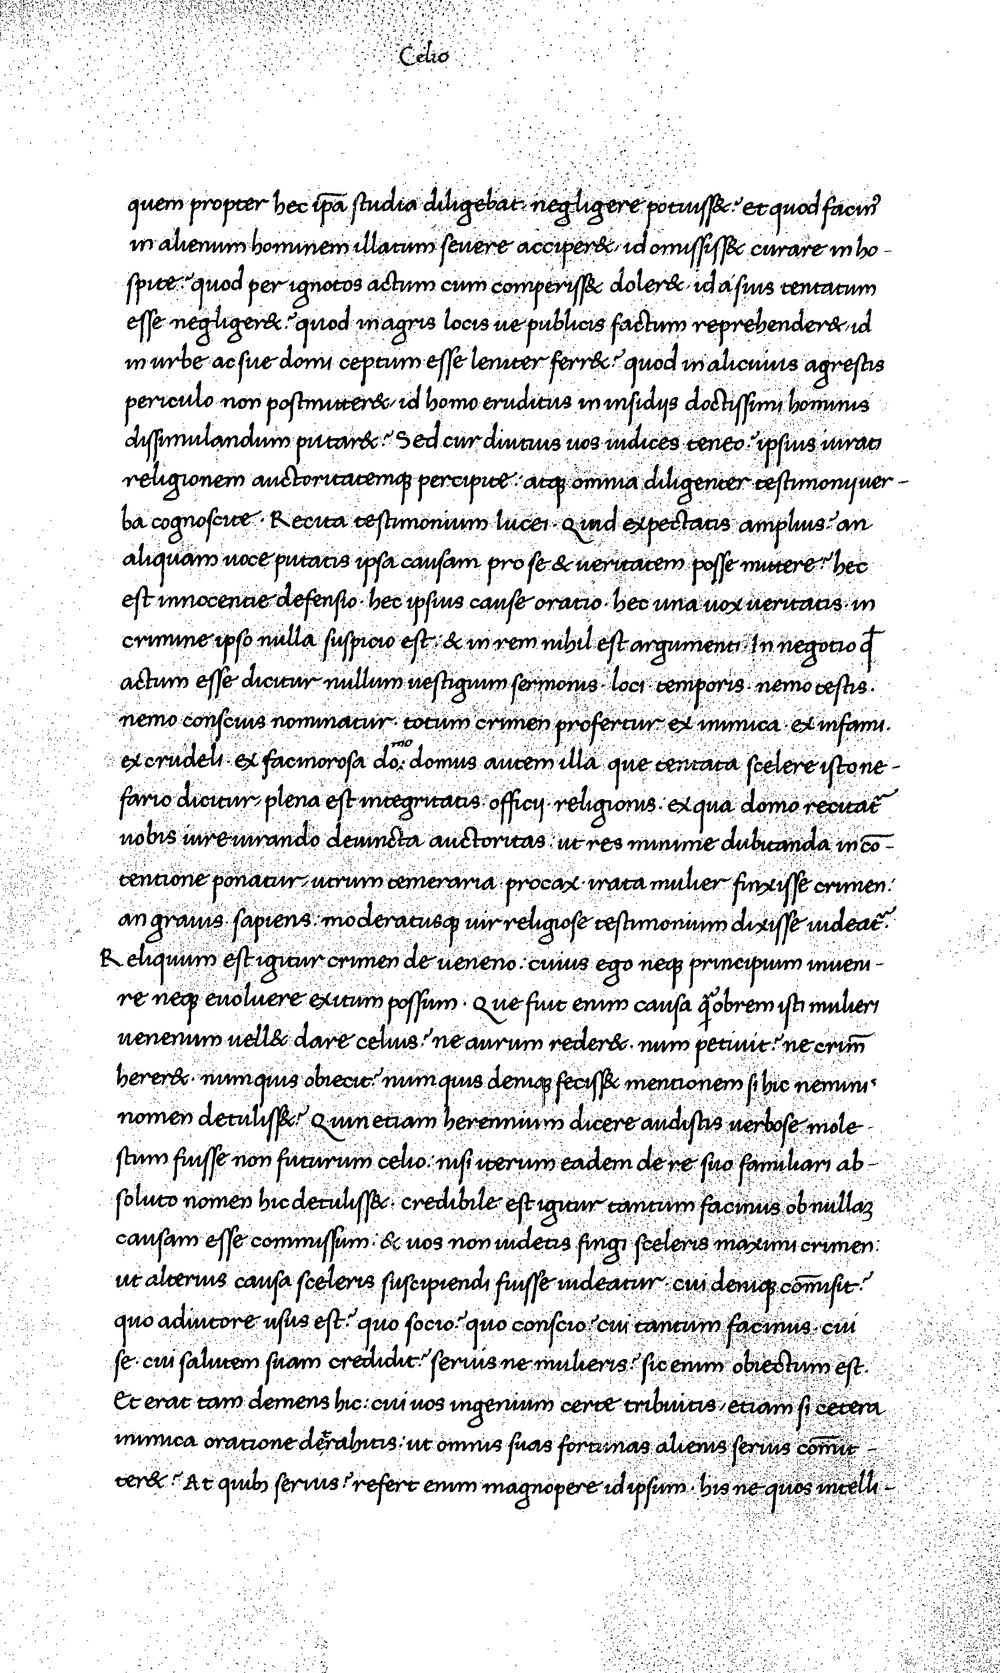 Celio
quem propter hec ip̄a studia diligebat negligere potuiss&? et quod facin᷒
in alienum hominem illatum seuere acciper& id omississ& curare in ho-
spite? quod per ignotos actum cum comperiss& doler& id a suis tentatum
esse negliger&? quod in agris locis ue publicis factum reprehender& id
in urbe ac sue domi ceptum esse leniter ferr&? quod in alicuius agrestis
periculo non postmitter& id homo eruditus in insidijs doctissimi hominis
dissimulandum putar&? Sed cur diutius uos iudices teneo? ipsius iurati
religionem auctoritatemqꝫ percipite: atqꝫ omnia diligenter testimonij uer-
ba cognoscite. Recita testimonium lucei. Quid expectatis amplius? an
aliquam uoce putatis ipsa causam pro se & ueritatem posse mittere? hec
est innocentie defensio. hec ipsius cause oratio. hec una uox ueritatis. in
crimine ipso nulla suspicio est: & in rem nihil est argumenti. In negotio qđ
actum esse dicitur nullum uestigium sermonis. loci. temporis. nemo testis.
nemo conscius nominatur. totum crimen profertur ex inimica. ex infami.
ex crudeli. ex facinorosa do:mo domus autem illa que tentata scelere isto ne-
fario dicitur, plena est integritatis. officij. religionis. ex qua domo recitat᷑
uobis iure iurando deuincta auctoritas: ut res minime dubitanda in cō-
tentione ponatur, utrum temeraria. procax. irata mulier finxisse crimen:
an grauis. sapiens. moderatusqꝫ uir religiose testimonium dixisse uideat᷑?
Reliquum est igitur crimen de ueneno: cuius ego neqꝫ principium inueni-
re neqꝫ euoluere exitum possum. Que fuit enim causa q̄obrem isti mulieri
uenenum uell& dare celius? ne aurum reder&. num petiuit? ne crim̄
herer&. numquis obiecit? num quis deniqꝫ feciss& mentionem si hic nemini
nomen detuliss&? Quin etiam herennium dicere audistis uerbose mole-
stum fuisse non futurum celio: nisi iterum eadem de re suo familiari ab-
soluto nomen hic detuliss&. credibile est igitur tantum facinus ob nullaꝫ
causam esse commissum. & uos non uidetis fingi sceleris maximi crimen:
ut alterius causa sceleris suscipiendi fuisse uideatur. cui deniqꝫ com̄isit?
quo adiutore usus est? quo socio? quo conscio? cui tantum facinus. cui
se. cui salutem suam credidit? seruis ne mulieris? sic enim obiectum est.
Et erat tam demens hic: cui uos ingenium certe tribuitis, etiam si cetera
inimica oratione det̄rahitis: ut omnis suas fortunas alienis seruis com̄it-
ter&? At quibꝫ seruis? refert enim magnopere id ipsum. his ne quos intelli-